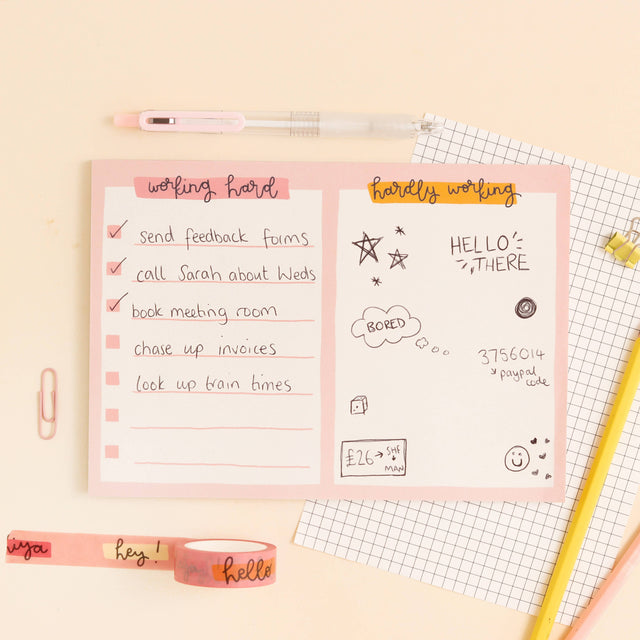 working hard
send feedback forms
call Sarah about Weds
book meeting room
chase up invoices
look up train times
hardly working
HELLO
THERE
BORED
3756014
paypal
code
£26 → SHF
MAN
iya
hey!
hello